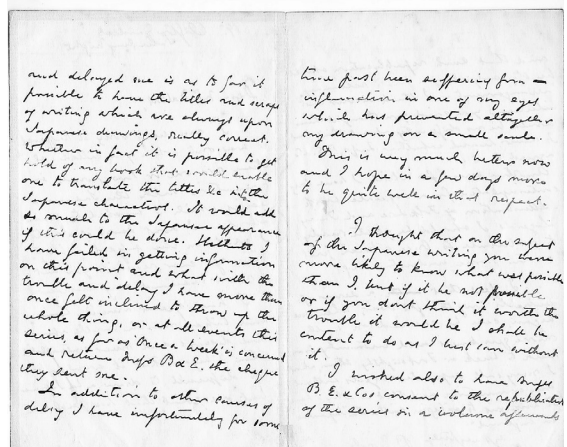 and delayed me is as to how far it
possible to have the titles and scraps
of writing which are always upon
Japanese drawings, really correct.
Whether in fact it is possible to get
hold of any book that would enable
one to translate the titles &c into the
Japanese characters. It would add
so much to the Japanese appearance
if this could be done. Hitherto I
have failed in getting information
on this point and what with the
trouble and delay I have more than
once felt inclined to throw up the
whole thing, or at all events this
series, as far as 'Once a Week' is concerned
and return Messrs B & E. the cheque
they sent me.
In addition to other causes of
delay I have unfortunately for some
time past been suffering from
inflammation in one of my eyes
which has prevented altogether
my drawing on a small scale.
This is very much better now
and I hope in a few days more
to be quite well in that respect.
I thought that on the subject
of the Japanese writing you were
more likely to know what was possible
than I, but if it be not possible
or if you don't think it worth the
trouble it would be I shall be
content to do as I best can without
it.
I wished also to have Messrs
B E. & Cos. consent to the republication
of the series in a volume afterwards